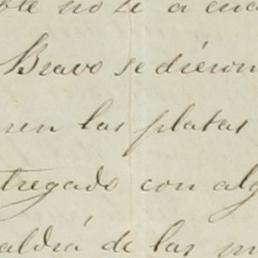 ble no se a cua
Bravo se dieron
ren las platas
tregado con alg
aldrá de las m